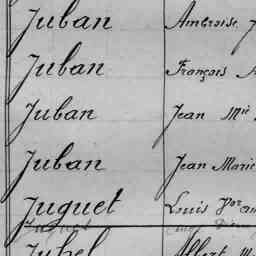 Juban Ambroise
Juban François
Juban Jean Mie
Juban Jean Marie
Juguet Louis
Juguet
Juhel Albert